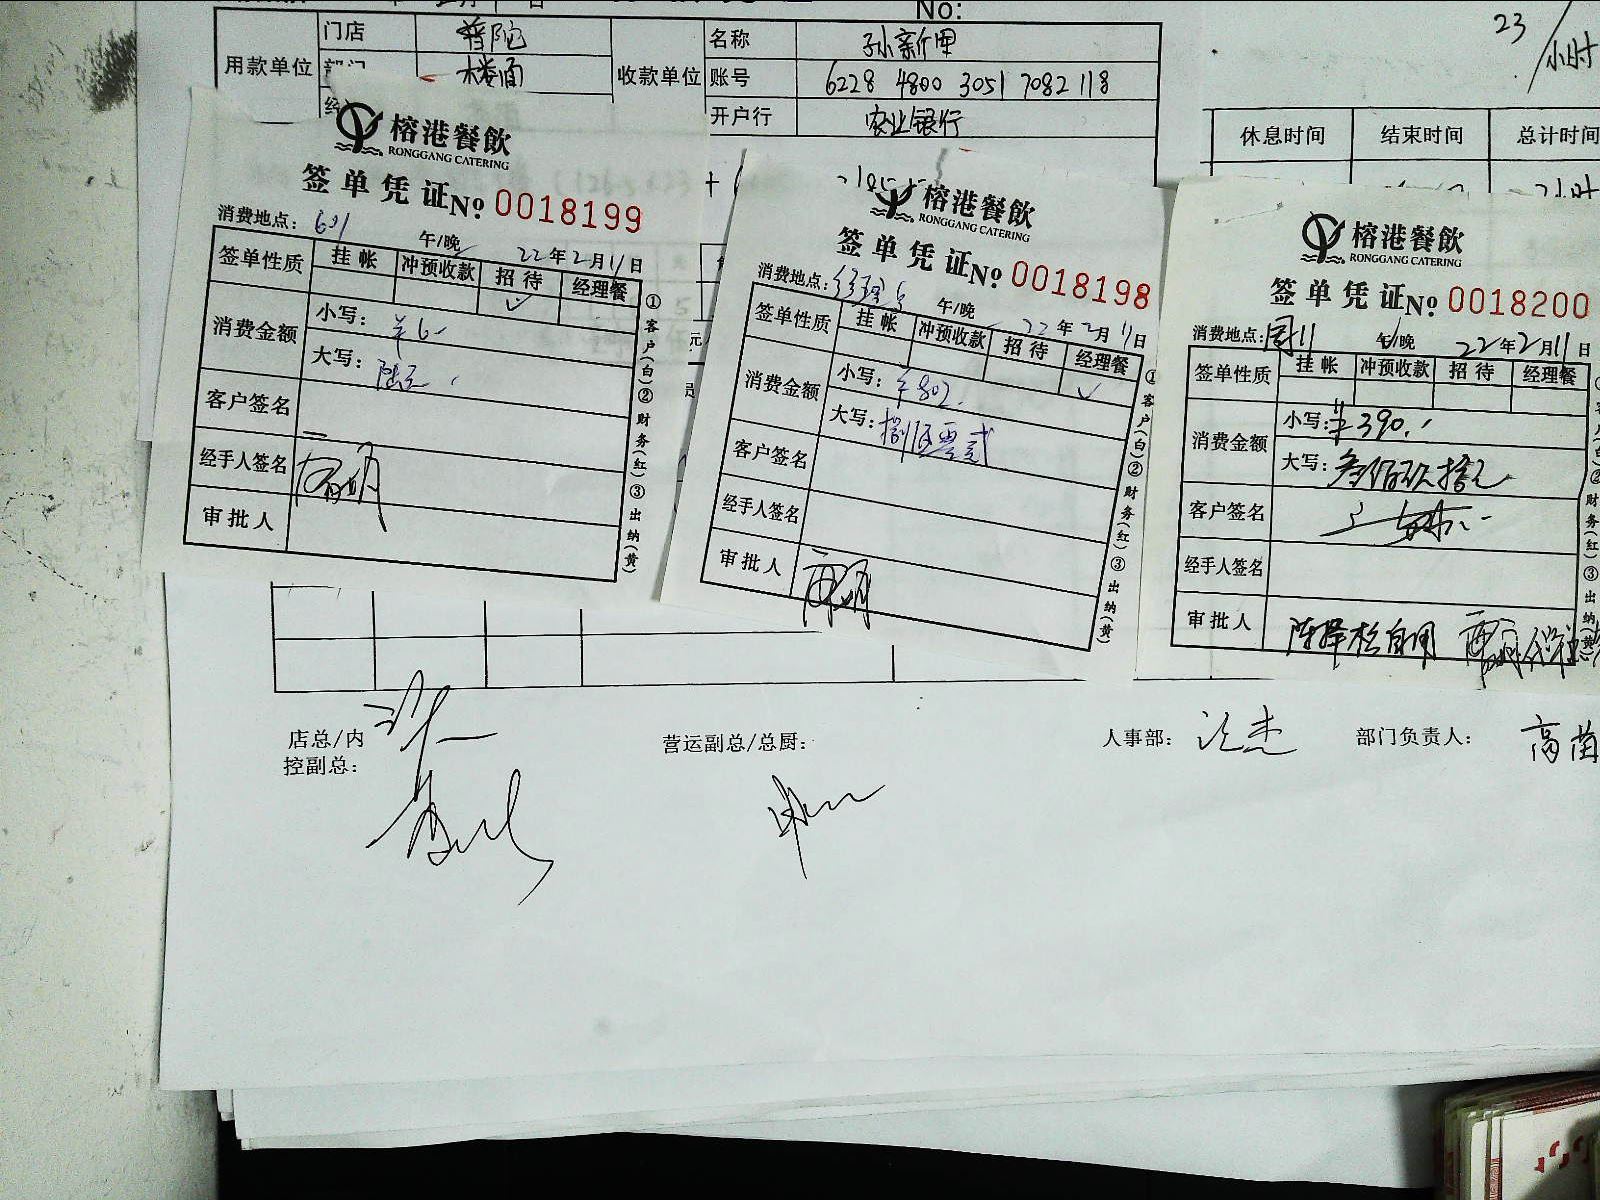 No:
用款单位 门店 普陀 收款单位 名称 孙新里
部门 楼面 账号 6228 4800 3051 7082 118
开户行 农业银行
23/小时
休息时间 结束时间 总计时间
榕港餐飲
RONGGANG CATERING
签单凭证 No 0018199
消费地点: 601 午/晚 22年2月11日
签单性质 挂帐 冲预收款 招待 经理餐
消费金额 小写: ¥6.-
大写: 陆元
客户签名
经手人签名
审批人
①客户(白)②财务(红)③出纳(黄)
榕港餐飲
RONGGANG CATERING
签单凭证 No 0018198
消费地点: 经理 午/晚 22年2月11日
签单性质 挂帐 冲预收款 招待 经理餐
消费金额 小写: ¥802.
大写: 捌佰零贰
客户签名
经手人签名
审批人
①客户(白)②财务(红)③出纳(黄)
榕港餐飲
RONGGANG CATERING
签单凭证 No 0018200
消费地点: 午/晚 22年2月11日
签单性质 挂帐 冲预收款 招待 经理餐
消费金额 小写: ¥390.-
大写: 叁佰玖拾元
客户签名
经手人签名
审批人 陈择松自用
②财务(红)③出纳(黄)
店总/内控副总:
营运副总/总厨:
人事部:
部门负责人: 高苗